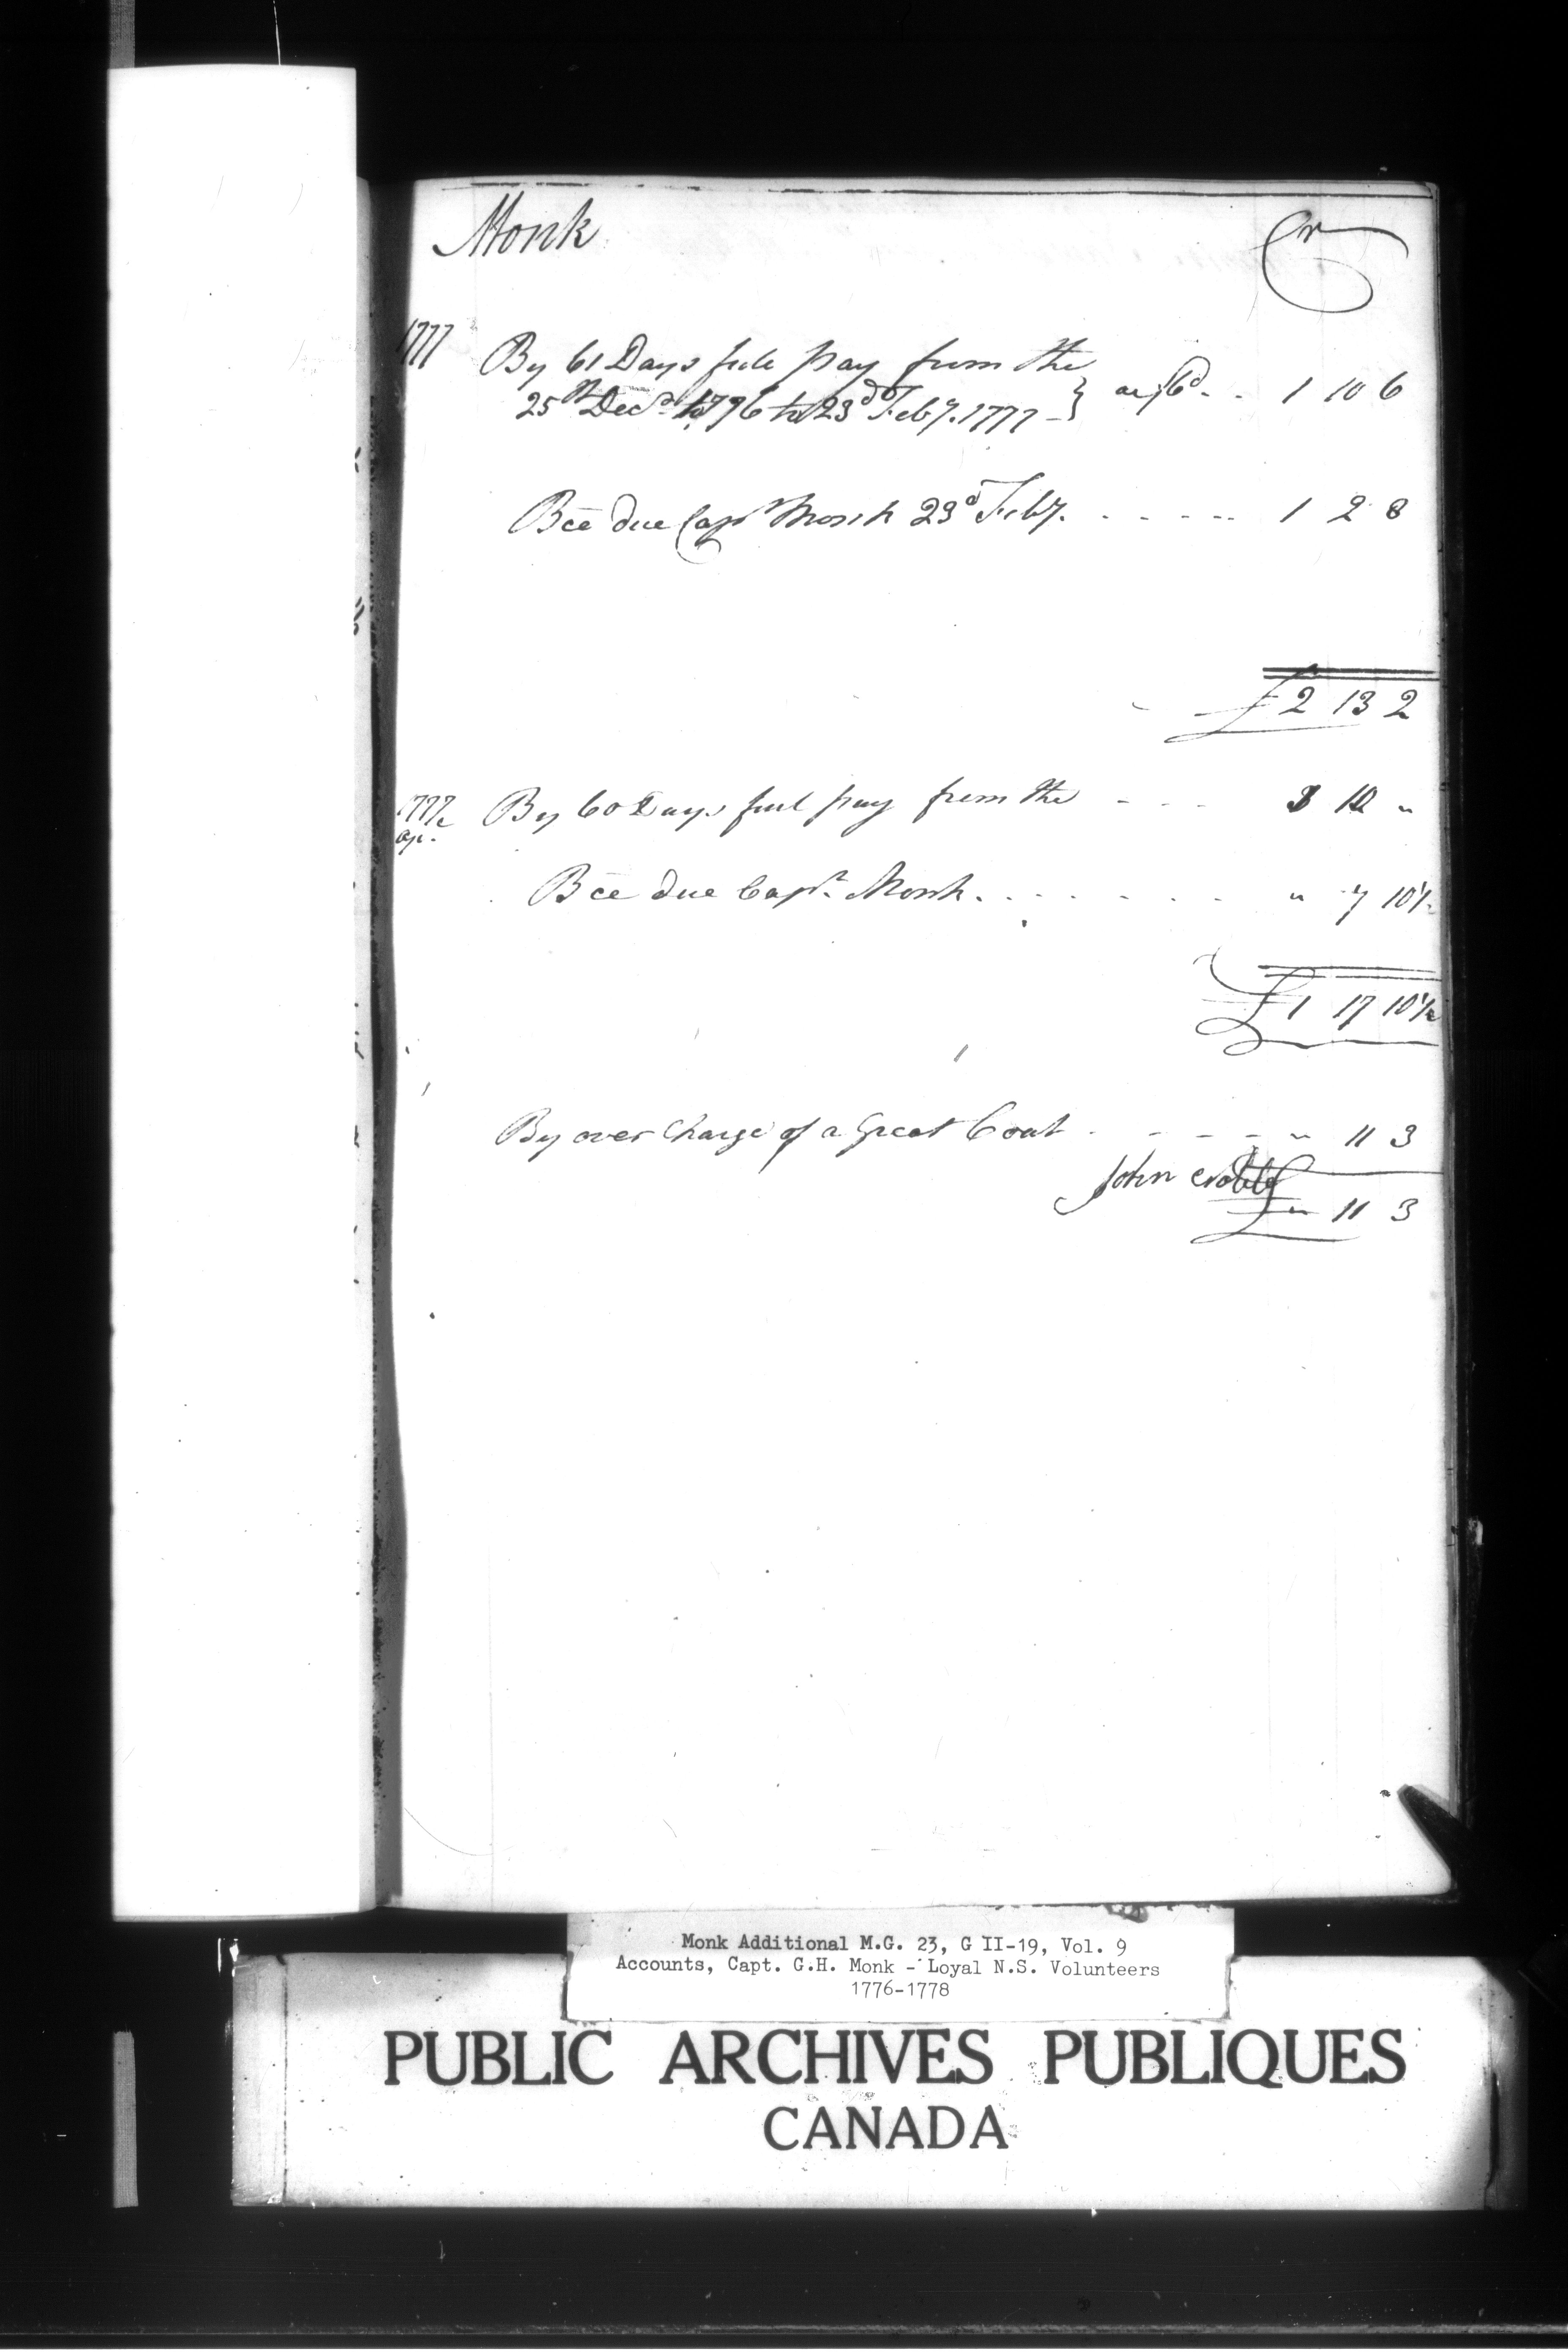 Monk Cr
1777 By 61 Days full pay from the
25th Decr 1776 to 23d Feby. 1777 } a 6d. . . 1 10 6
Bce due Capt Monk 23d Feby. . - - - - - 1 2 8
£ 2 13 2
1777 By 60 Days full pay from the - - - 1 10 "
ap.
Bce due Capt. Monk. . . - . - . - " 7 10½
£ 1 17 10½
By over Charge of a Great Coat . - - - - " 11 3
John
£ " 11 3
Monk Additional M.G. 23, G II-19, Vol. 9
Accounts, Capt. G.H. Monk - Loyal N.S. Volunteers
1776-1778
PUBLIC ARCHIVES PUBLIQUES
CANADA